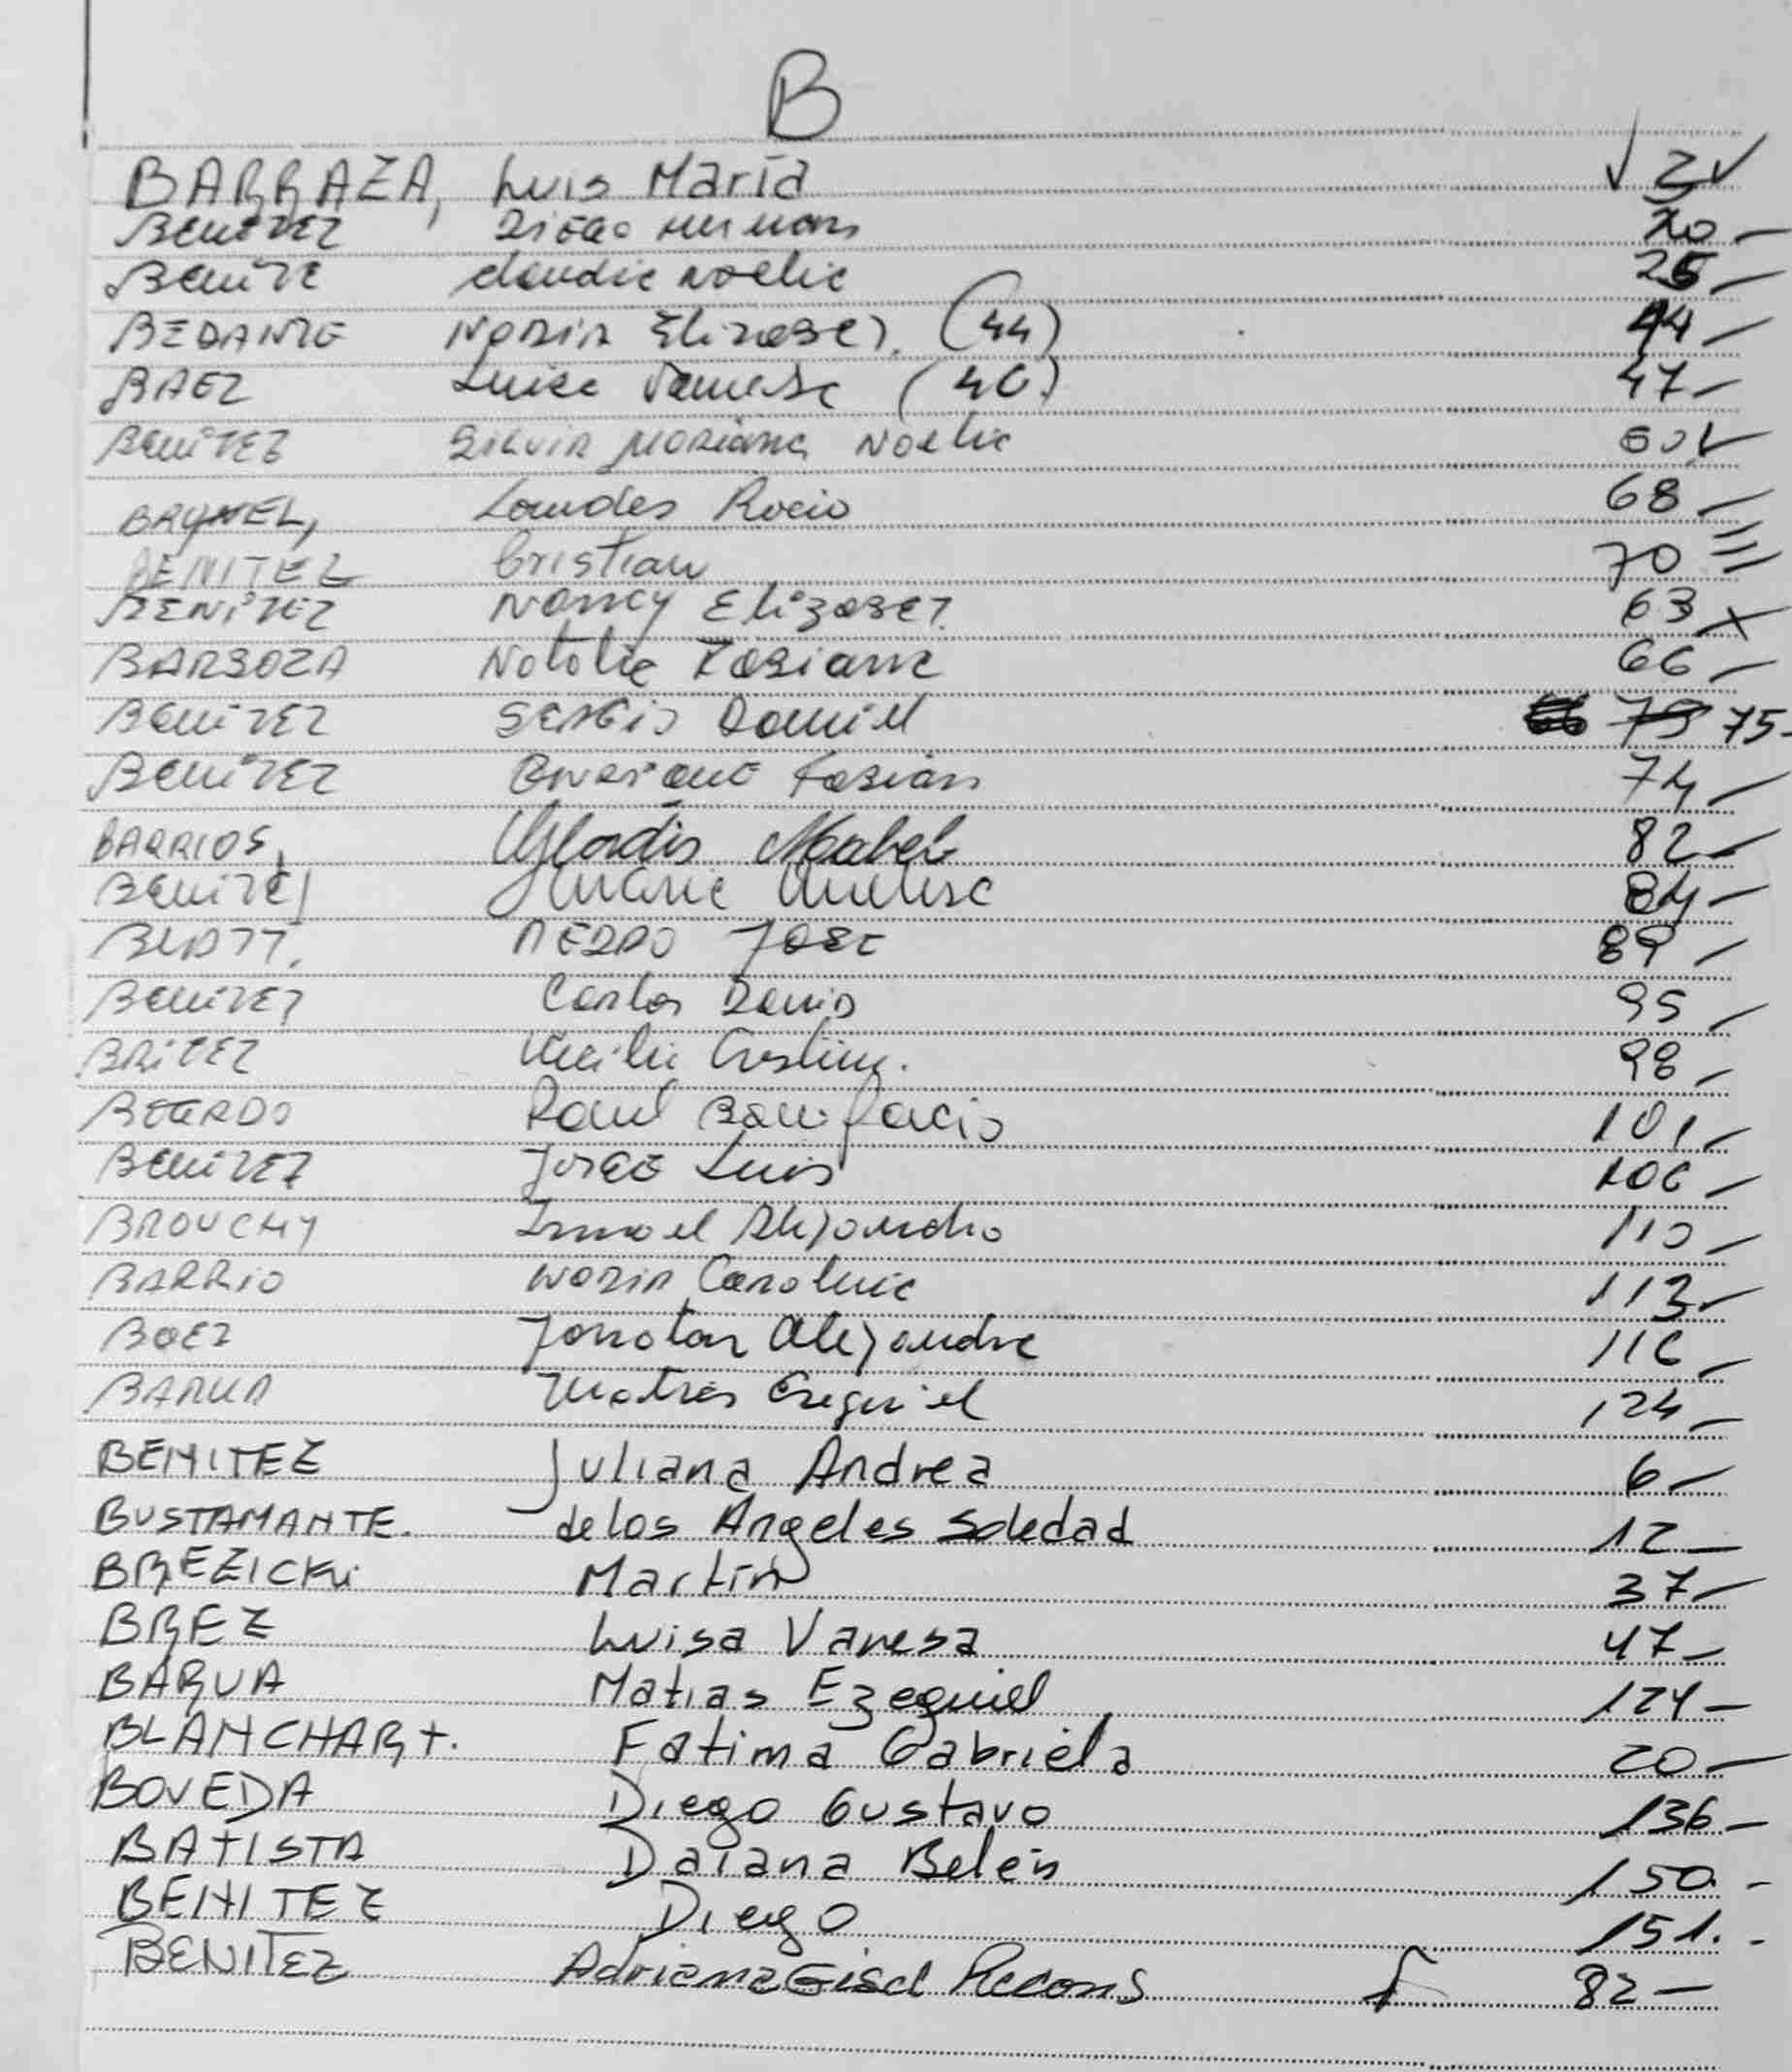 B
BARRAZA, Luis María 3
BENITEZ Diego Hernan 20
BENITE Claudia Noelia 25
BEDANTE Maria Elizabet. (44) 44
BAEZ Luisa Vanesa (46) 47
BENITEZ Silvia Mariana Noelia 60
BAYNEL, Lourdes Rocio 68
BENITEZ Cristian 70
BENITEZ Nancy Elizabet. 63
BARBOZA Natalia Fabiana 66
BENITEZ Sergio Daniel 75
BENITEZ Enrique Fabian 74
BARRIOS, Gladis Mabel 82
BENITEZ Maria 84
BLATT. PEDRO JOSE 89
BENITEZ Carlos David 95
BRITEZ Cristina. 98
Raul Bonifacio 101
BENITEZ Jorge Luis 106
BROUCHY Ismael Alejandro 110
BARRIO Maria Carolina 113
BAEZ Jonatan Alejandro 116
BARUA Matias Ezequiel 124
BENITEZ Juliana Andrea 6
BUSTAMANTE. de los Angeles Soledad 12
BREZICKi Martin 37
BAEZ Luisa Vanesa 47
BARUA Matias Ezequiel 124
BLANCHART. Fatima Gabriela 20
BOVEDA Diego Gustavo 136
BATISTA Daiana Belén 150.
BENITEZ Diego 151.
BENITEZ Adriana Gisel 82